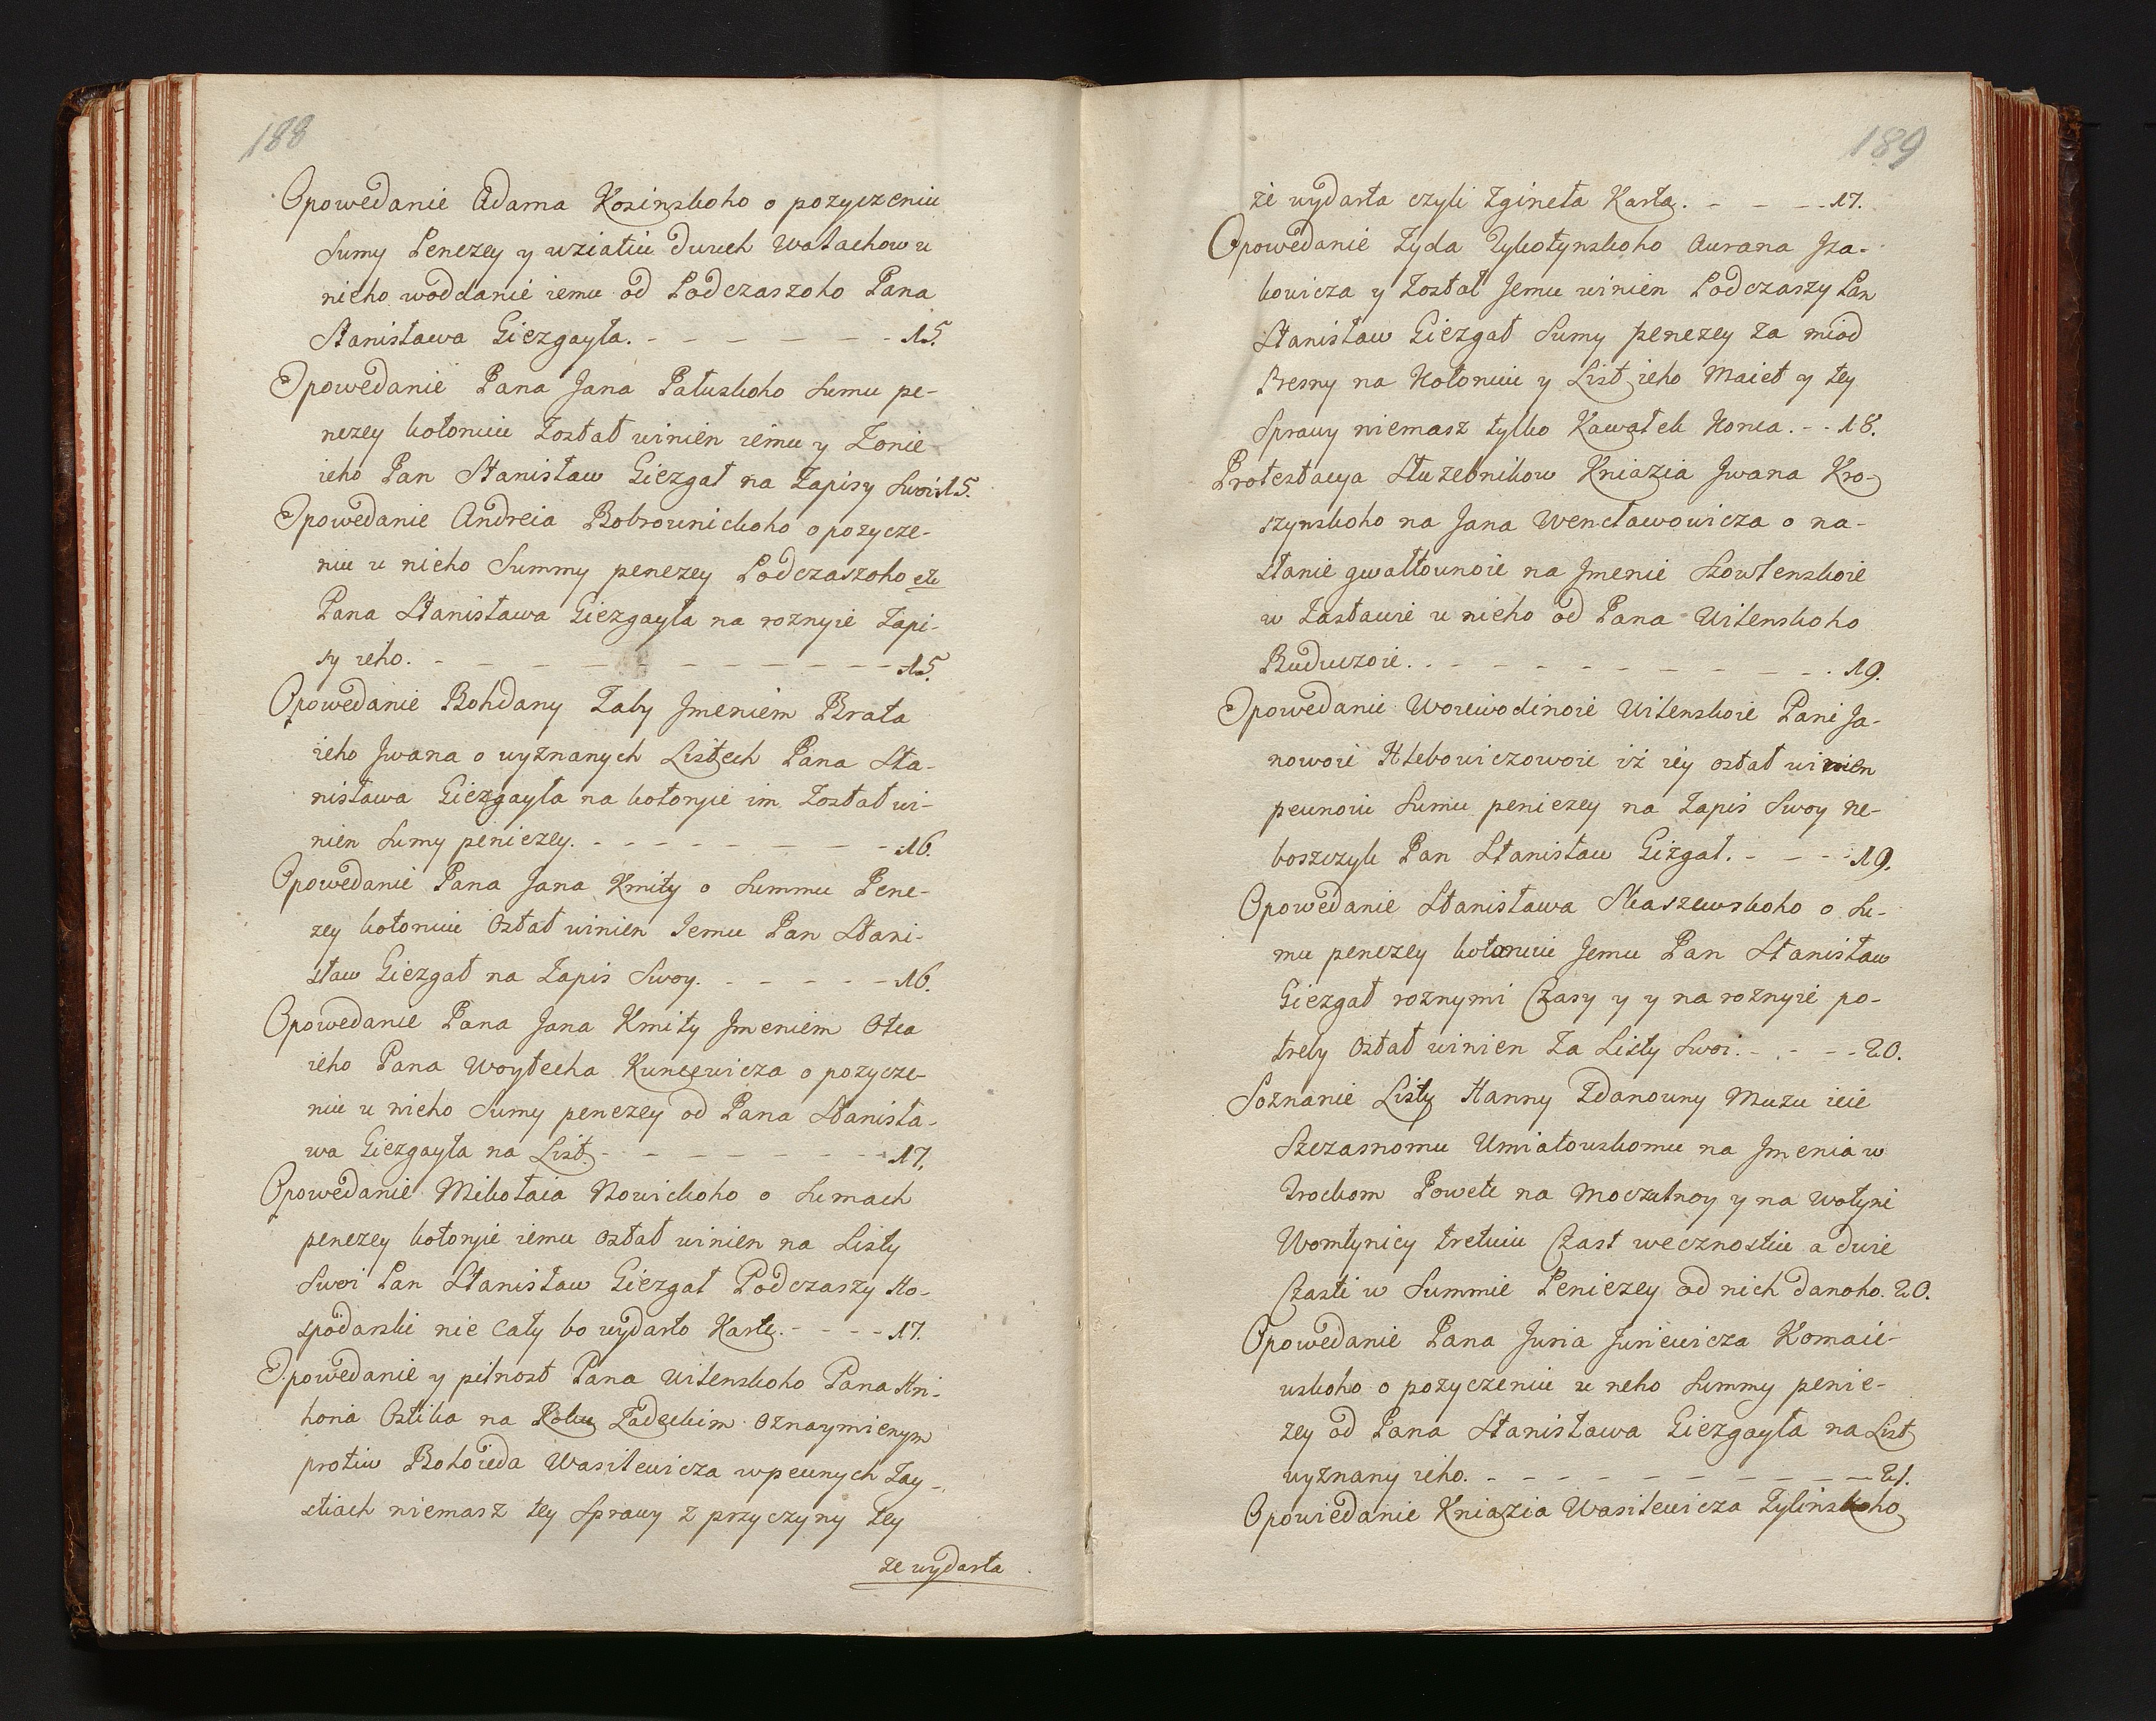 188
Opowedanie Adama Kosinskoho o pozyczeniu
Sumy Penezey y wziatiu dwuch Wałachow u
nieho woddanie iemu od Podczaszoho Pana
Stanisława Giezgayła. - - - - - - - 15.
Opowedanie Pana Jana Pałuskoho Sumu pe-
nezey kotoruiu Został winien iemu y Zonie
ieho Pan Stanisław Giezgał na Zapisy Swoi 15.
Opowedanie Andreia Bobrownickoho o pozycze-
niu u nieho Summy penezey Podczaszoho etc
Pana Stanisława Giezgayła na roznyie Zapi-
sy ieho. - - - - - - - - - - - 15.
Opowedanie Bohdany Zaby Jmeniem Brata
ieho Jwana o wyznanych Listech Pana Sta-
nisława Giezgayła na kotoryie im Został wi-
nien Sumy peniezey. - - - - - - - - 16.
Opowedanie Pana Jana Kmity o Summu Pene-
zey kotoruiu Ostał winien Jemu Pan Stani-
sław Giezgał na Zapis Swoy. - - - - - 16.
Opowedanie Pana Jana Kmity Jmeniem Otca
ieho Pana Woytecha Kuncewicza o pozycze-
niu u nieho Sumy penezey od Pana Stanisła-
wa Giezgayła na List. - - - - - - - 17.
Opowedanie Mikołaia Nowickoho o Sumach
penezey kotoryie iemu ostał winien na Listy
Swoi Pan Stanisław Giezgał Podczaszy Ho-
spodarski nie cały bo wydarto Kartę. - - - - 17.
Opowedanie y pilnost Pana Wilenskoho Pana Hri-
horia Ostika na Roku Zadeckim Oznaymienym
protiw Bohoweda Wasilewicza w pewnych Zay-
stiach niemasz tey Sprawy z przyczyny tey
ze wydarta
189
że wydarta czyli Zgineła Karta. - - - - 17.
Opowedanie Zyda Tykotynskoho Awrana Jza-
kowicza y Został Jemu winien Podczaszy Pan
Stanisław Giezgał Sumy penezey za miod
Presny na Kotoruiu y List ieho Maiet y tey
Sprawy niemasz tylko Kawałek Konca. - - 18.
Protestacya Służebnikow Kniazia Jwana Kro-
szynskoho na Jana Wencławowicza o na-
słanie gwałtownoie na Jmenie Szowlenskoie
w Zastawie u nieho od Pana Wilenskoho
Buduczoie. - - - - - - - - - - 19.
Opowedanie Woiewodinoie Wilenskoie Pani Ja-
nowoie Hlebowiczowoie iż iey ostał winien
pewnoiu Sumu peniezey na Zapis Swoy ne-
boszczyk Pan Stanisław Gizgał. - - - 19.
Opowedanie Stanisława Skaszewskoho o Su-
mu penezey kotoruiu Jemu Pan Stanisław
Giezgał roznymi Czasy y y na roznyie po-
treby Ostał winien Za Listy Swoi. - - - - 20.
Soznanie Listy Hanny Zdanowny Mużu ieie
Szczasnomu Umiatowskomu na Jmenia w
Trockom Powete na Moczulnoy y na Wołyni
Womtynicy tretuiu Czast wecznostiu a dwie
Czasti w Summie Peniezey od nich danoho. 20.
Opowedanie Pana Juria Juriewicza Komaie-
wskoho o pozyczeniu u neho Summy penie-
zey od Pana Stanisława Giezgayła na List
wyznany ieho. - - - - - - - - - 21.
Opowiedanie Kniazia Wasilewicza Żylinskoho